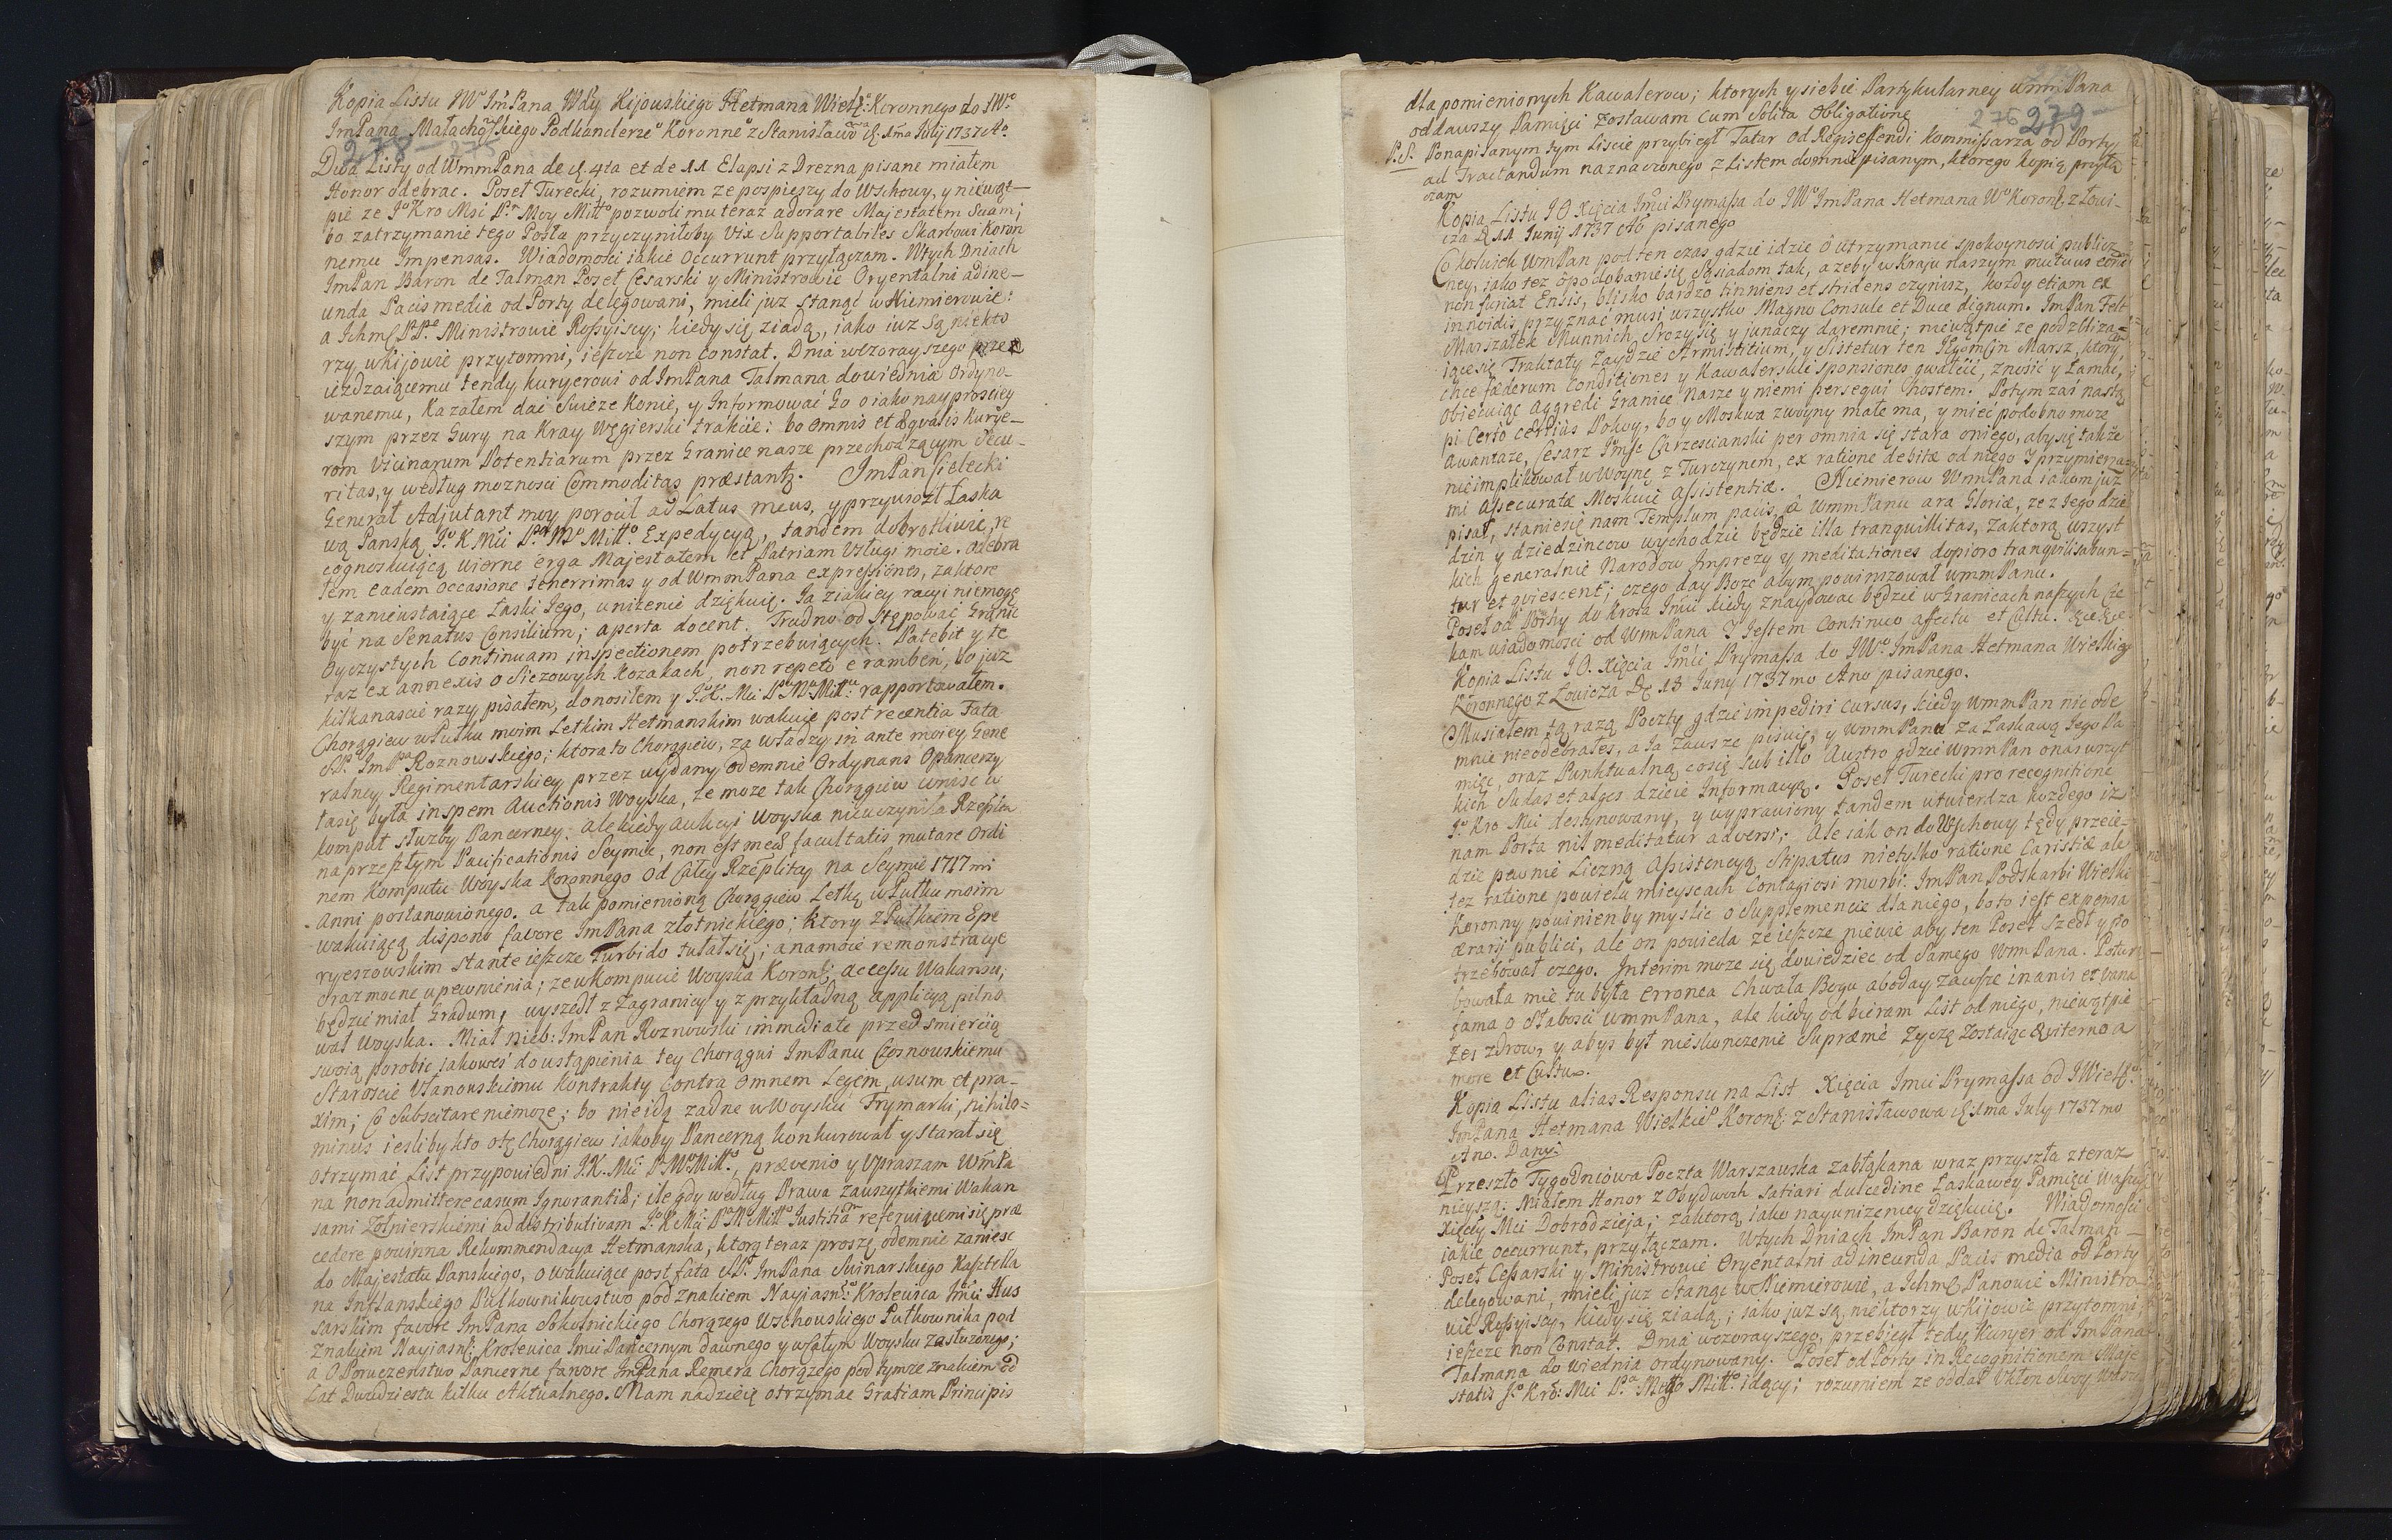 Kopia Listu JWo ImPana Wdy Kijouskiego Hetmana Wielk: Koronnego do JWo
ImPana Małachowskiego Podkanclerzego Koronnego z Stanisławowa d. 1ma July 1737 Ao
278 - 275
Dwa Listy od WmmPana de d. 4ta et de 11 Elapsi z Drezna pisane miałem
Honor odebrac. Poseł Turecki, rozumiem ze pospieszy do Wschowy, y niewąt-
pie ze Jo Kro Msc Pn Moy Mitto pozwoli mu teraz adorare Majestatem Suam;
bo zatrzymanie tego Posła przyczyniłoby vix supportabiles Skarbowi Koron
nemu Impensas. Wiadomosci iakie occurrunt przyłączam. Wtych Dniach
ImPan Baron de Talman Poseł Cesarski y Ministrowie Oryentalni adine-
unda Pacis media od Porty delegowani, mieli juz stanąc w Niemierowie:
a Ichmc PPe Ministrowie Rossyiscy; kiedy się ziadą, iako iuz są niekto
rzy w Kijowie przytomni, ieszcze non constat. Dnia wczorayszego prze
iezdzaiącemu tendy kuryerowi od ImPana Talmana do Wiednia ordyno-
wanemu, kazałem dac swieze konie, y Informowac Go o iako nayprosciey
szym przez Gury na Kray Węgierski trakcie: bo omnis et æqvalis kurye-
rom vicinarum Potentiarum przez Granice nasze przechodzącym secu-
ritas, y według moznosci Commoditas præstantr. ImPan Sielecki
Generał Adjutant moy porocił ad Latus meus, y przywiozł Łaska
wą Panską Jo K Mci Pa Mo Mitto Expedycyą, tandem dobrotliwie, re
cognoskuiącą wierne erga Majestatem et Patriam Usługi moie. Odebra
łem eadem occasione tenerrimas y od WmmPana expressiones, zaktore
y zanieustaiące Łaski Jego, unizenie dziękuię. Ja ziakiey racyi niemogę
być na Senatus Consilium; aperta docent. Trudno odstępować Granic
Oyczystych continuam inspectionem potrzebuiących. Patebit y te
raz ex annexis o Siczowych Kozakach, non repeto e ramben, bo juz
kilkanascie razy pisałem, donosiłem y Jo K. Mci Pu Mu Mittu rapportowałem.
Chorągiew w Pułku moim Letkim Hetmanskim wakuie post recentia Fata
SP. ImPa Roznowskiego; ktora to Chorągiew, za władzy in ante moiey Gene
ralney Regimentarskiey przez wydany odemnie Ordynans Opancerzy
łasię była inspem Auctionis Woyska, ze moze tak Chorągiew wniesc w
komput słuzby Pancerney; ale kiedy aukcyi woyska nieuczyniła Rzeplta
na przeszłym Pacificationis Seymie, non est meæ facultatis mutare ordi
nem Komputu Woyska Koronnego od Całey Rzeplitey na Seymie 1717mi
Anni postanowionego. a tak pomienioną Chorągiew Letką w Pułku moim
wakuiącą dispono favore ImPana złotnickiego; ktory z Pułkiem Epe
ryeszowskim stante ieszcze Turbido tułał się; a na moie remonstracye
oraz mocne upewnienia; ze w kompucie Woyska Koronl: accessu Wakansu,
będzie miał Gradum, wyszedł z Zagranicy y z przykładną applicyą pilno
wał Woyska. Miał nieb: ImPan Roznowski immediate przed smiercią
swoią porobic iakowes do ustąpienia tey Chorągwi ImPanu Czosnowskiemu
Staroscie Ułanowskiemu Kontrakty contra omnem Legem, usum et pra-
xim; co Subscitare niemoze; bo nie idą zadne w Woysku Frymarki, nihilo-
minus iesliby kto otę Chorągiew iakoby Pancerną konkurował y Starał się
otrzymać List przypowiedni J.K. Mci P Mo Mitto, prævenio y Upraszam WmPa
na non admittere casum Ignorantiæ; ile gdy według Prawa zawszytkiemi Wakan
sami Zołnierskiemi ad distributivam Jo K Mci Pa Mo Mitto Justitiam referuiącemi się præ
cedere powinna Rekommendacya Hetmanska, ktorą teraz proszę odemnie zaniesc
do Majestatu Panskiego, o wakuiące post fata SP. ImPana Swinarskiego Kasztella
na Inflanskiego Pułkownikowstwo pod znakiem Nayiasnol: Krolewica Imci Hus
sarskim favore ImPana Sokolnickiego Chorązego Wschowskiego Pułkownika pod
Znakiem Nayiasnl: Krolewica Imci Pancernym dawnego y wcałym Woysku zasłuzonego;
a o Poruczenstwo Pancerne favore ImPana Remera Chorązego pod tymze znakiem od
Lat Dwudziestu kilku Aktualnego. Mam nadzieię otrzymac Gratiam Principis
dla pomienionych Kawalerow; ktorych y siebie Partykularney WmmPana
oddawszy Pamięci zostawam cum Solita Obligatione
276 279 -
P.S. Ponapisanym tym Liscie przybiegł Tatar od Regiseffendi kommissarza od Porty
ad Tractandum naznaczonego z Listem domnie pisanym, ktorego kopią przyłą
czam
Kopia Listu J O. Xięcia Imci Prymassa do JWo ImPana Hetmana Wo Koronl. z Łowi-
cza D 11 Junij 1737 Ao pisanego
Cokolwiek WmPan podten czas gdzie idzie o utrzymanie spokoynosci publicz
ney, iako tez opodobaniesię Sąsiadom tak, a zeby w Kraju naszym mutuus eorum
non furiat Ensis, blisko bardzo tinniens et stridens czynisz, kozdy etiam ex
invidis przyznac musi wszystko Magno Consule et Duce dignum. ImPan Felt
Marszałek Munnich Srozy się y junaczy daremnie; niewątpie ze podzbliza-
iącesię Traktaty Zaydzie Armistitium, y Sistetur ten Jegomcin Marsz, ktory
chce fæderum Conditiones y Kawalerskie sponsiones gwałcic, znosic y łamac,
obiecuiąc aggredi Granice nasze y niemi persequi hostem. Potym zaś nastą
pi certo certius Pokoy, bo y Moskwa zwoyny małe ma, y miec podobno moze
Awantaze, Cesarz Imsc Chrzescianski per omnia się stara oniego, aby się takze
nieimplikował w Woynę z Turczynem, ex ratione debitæ od niego z przymierza
mi assecuratæ Moskwie Assistentiæ. Niemierow WmPana iakom juz
pisał, stanie się nam Templum pacis, a WmmPanu ara Gloriæ, ze z Jego dzie
dzin y dziedzincow wychodzic będzie illa tranquillitas, zaktorą wszyst
kich generalnie Narodow Imprezy y meditationes dopioro tranqvilisabun-
tur et qviescent; czego day Boze abym powinszował WmmPanu.
Poseł od Porty do Krola Imci kiedy znaydowac będzie w Granicach naszych cze
kam wiadomosci od WmPana y Jestem continuo affectu et Cultu. &c &c.
Kopia Listu J O. Xięcia Imci Prymassa do JWo ImPana Hetmana Wielkieo
Koronnego z Łowicza D. 18 Juny 1737mo Ano pisanego.
Musiałem tą razą Poczty gdzie impediri cursus, kiedy WmmPan nic ode
mnie nieodebrałes, a Ja zawsze piszuię, y WmmPana za Łaskawą Jego Pa
mięc, oraz Punktualną cosię Sub illo Austro gdzie WmmPan onas wszyt
kich Sudas et alges dzieie Informacyą. Poseł Turecki pro recognitione
Jo Kro Mci destynowany, y wyprawiony tandem utwierdza kozdego iz
nam Porta nil meditatur adversi; Ale iak on do Wschowy tędy przeie-
dzie pewnie Liczną Assistencyą Stipatus nietylko ratione Caristiæ ale
tez ratione powielu mieyscach Contagiosi morbi. ImPan Podskarbi Wielki
Koronny powinien by myslic o Supplemencie dla niego, bo to iest expensa
ærarij publici, ale on powieda ze ieszcze niewie aby ten Poseł szedł y po
trzebował czego. Interim moze się dowiedziec od Samego WmPana. Potur
bowała mie tu była erronea Chwała Bogu abodayzawsze inanis et vana
fama o Słabosci WmmPana, ale kiedy odbieram List od niego, niewątpie
zes zdrow, y abys był nieskonczenie Supræme Zyczę zostaiąc æviterno a
more et Cultu.
Kopia Listu alias Responsu na List Xięcia Imci Prymassa od JWielk.
ImPana Hetmana Wielkieo Koronl. z Stanisławowa d. 1ma July 1737mo
Ano. Dany.
Przeszło Tygodniowa Poczta Warszawska zabłąkana wraz przyszła z teraz
nieyszą: Miałem Honor z obydwoch satiari dulcedine Łaskawey Pamięci Waszey
Xięcey Mci Dobrodzieja; zaktorą iako nayunizeniey dziękuię. Wiadomosci
iakie occurrunt, przyłączam. Wtych Dniach ImPan Baron de Talman
Poseł Cessarski y Ministrowie Oryentalni ad ineunda Pacis media od Porty
delegowani, mieli juz stanąc w Niemierowie, a Ichmc Panowie Ministro
wie Rossyiscy, kiedy się ziadą; iako juz są niektorzy w Kijowie przytomni,
ieszcze non Constat. Dnia wczorayszego, przebiegł tędy Kuryer od ImPana
Talmana do Wiednia ordynowany. Poseł od Porty in Recognitionem Maje
statis Jo Kro: Mci Pa Mego Mitto idący; rozumiem ze oddał Ukłon Swoy